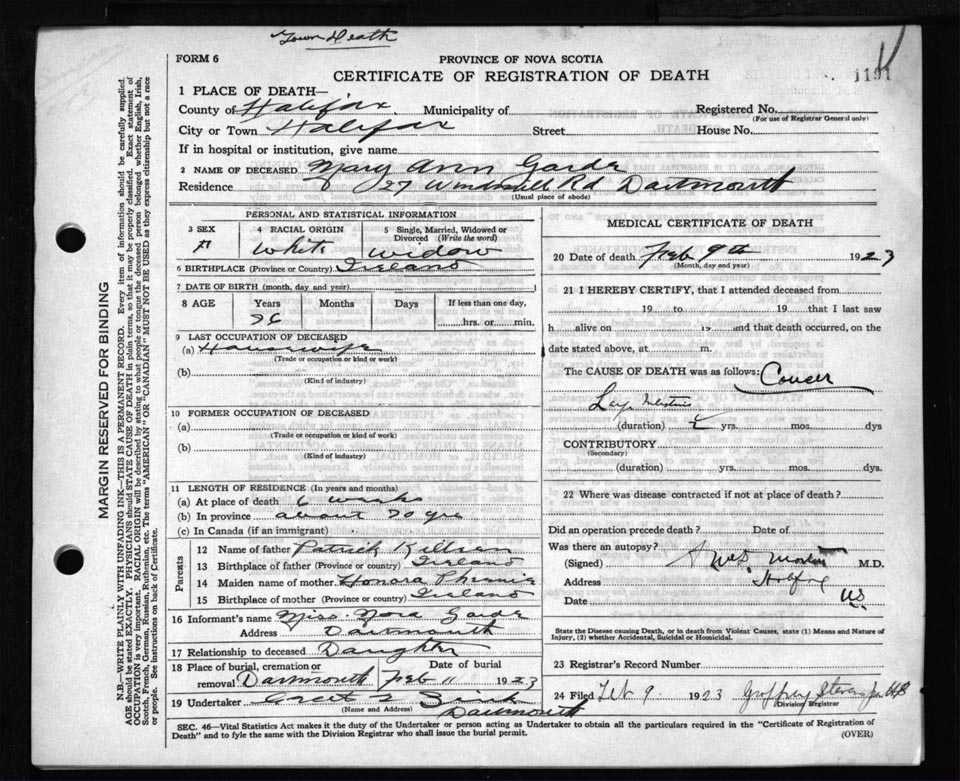 Town Death
FORM 6
PROVINCE OF NOVA SCOTIA
CERTIFICATE OF REGISTRATION OF DEATH
1191
1 PLACE OF DEATH—
County of Halifax Municipality of Registered No.
(For use of Registrar General only)
City or Town Halifax Street House No.
If in hospital or institution, give name
2 NAME OF DECEASED Mary Ann Garde
Residence 27 Windmill Rd Dartmouth
(Usual place of abode)
PERSONAL AND STATISTICAL INFORMATION
3 SEX 4 RACIAL ORIGIN 5 Single, Married, Widowed or Divorced (Write the word)
White Widow
6 BIRTHPLACE (Province or Country) Ireland
7 DATE OF BIRTH (month, day and year)
8 AGE Years Months Days If less than one day,
hrs. or min.
9 LAST OCCUPATION OF DECEASED
(a) Housewife
(Trade or occupation or kind or work)
(b)
(Kind of industry)
10 FORMER OCCUPATION OF DECEASED
(a)
(Trade or occupation or kind of work)
(b)
(Kind of industry)
11 LENGTH OF RESIDENCE (In years and months)
(a) At place of death 6 weeks
(b) In province about 70 yrs
(c) In Canada (if an immigrant)
Parents
12 Name of father Patrick
13 Birthplace of father (Province or Country) Ireland
14 Maiden name of mother Honora
15 Birthplace of mother (Province or Country) Ireland
16 Informant's name Miss Nora Garde
Address Dartmouth
17 Relationship to deceased Daughter
18 Place of burial, cremation or removal Dartmouth Date of burial Feb 11 1923
19 Undertaker
(Name and Address) Dartmouth
MEDICAL CERTIFICATE OF DEATH
20 Date of death Feb 9th 1923
(Month, day and year)
21 I HEREBY CERTIFY, that I attended deceased from
19 to 19 that I last saw
h alive on 19 and that death occurred, on the
date stated above, at m.
The CAUSE OF DEATH was as follows: Cancer
(duration) yrs. mos. dys
CONTRIBUTORY
(Secondary)
(duration) yrs. mos. dys.
22 Where was disease contracted if not at place of death?
Did an operation precede death? Date of
Was there an autopsy?
(Signed) M.D.
Address
Date
State the Disease causing Death, or in death from Violent Causes, state (1) Means and Nature of
Injury, (2) whether Accidental, Suicidal or Homicidal.
23 Registrar's Record Number
24 Filed Feb 9 1923
Division Registrar
SEC. 46—Vital Statistics Act makes it the duty of the Undertaker or person acting as Undertaker to obtain all the particulars required in the "Certificate of Registration of
Death" and to fyle the same with the Division Registrar who shall issue the burial permit. (OVER)
MARGIN RESERVED FOR BINDING
N.B.—WRITE PLAINLY WITH UNFADING INK—THIS IS A PERMANENT RECORD. Every item of information should be carefully supplied.
AGE should be stated EXACTLY. PHYSICIANS should STATE CAUSE OF DEATH in plain terms, so that it may be properly classified. Exact statement of
OCCUPATION is very important. RACIAL ORIGIN will be described by stating to what people or tongue the deceased person belonged whether English, Irish,
Scotch, French, German, Russian, Ruthenian, etc. The terms "AMERICAN" OR "CANADIAN" MUST NOT BE USED as they express citizenship but not a race
or people. See instructions on back of Certificate.